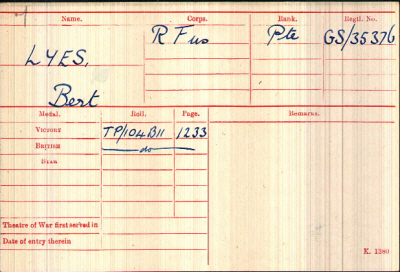 Name. Corps. Rank. Regtl. No.
LYES, R Fus Pte GS/35376
Bert
Medal. Roll. Page. Remarks.
VICTORY TP/104B11 1233
BRITISH do
STAR
Theatre of War first served in
Date of entry therein
K. 1380